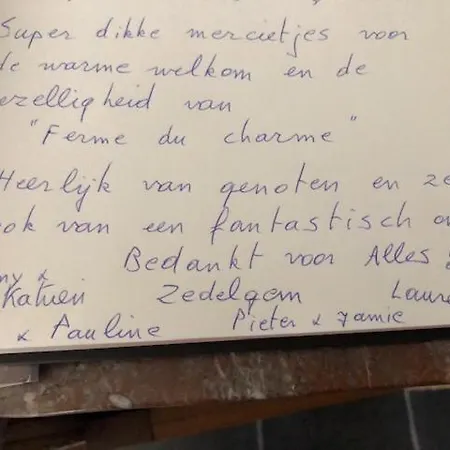 Super dikke mercietjes voor
de warme welkom en de
ezelligheid van
"Ferme du charme"
Heerlijk van genoten en ze
ook van een fantastisch on
Bedankt voor Alles
ny &
Katrien Zedelgem Laure
& Pauline Pieter & Jamie